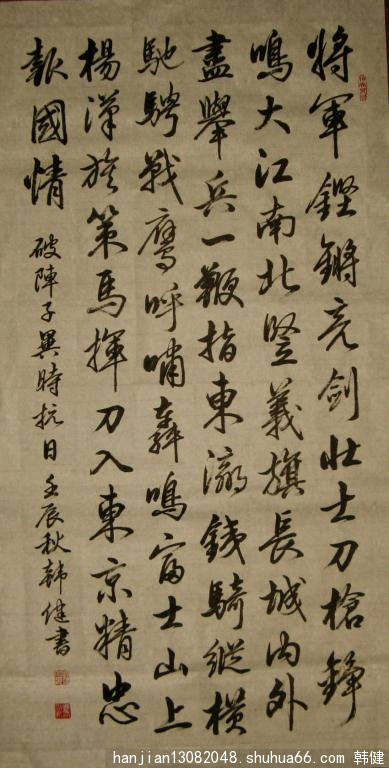 將軍鏗鏘亮劍壯士刀槍錚
鳴大江南北竪義旗長城内外
盡舉兵一鞭指東瀛鐵騎縱橫
馳騁戰鷹呼嘯轟鳴富士山上
楊漢旌策馬揮刀入東京精忠
報國情
破陣子異時抗日壬辰秋韓健書
hanjian13082048.shuhua66.com 韩健